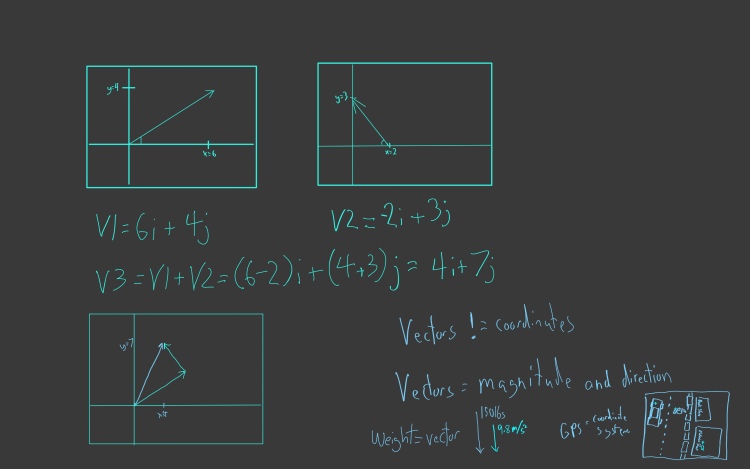 y=4
x=6
y=3
x=2
V1=6i+4j
V2=-2i+3j
V3=V1+V2=(6-2)i+(4+3)j=4i+7j
y=7
x=4
Vectors != coordinates
Vectors = magnitude and direction
Weight=vector
150lbs
9.8m/s²
GPS=coordinate system